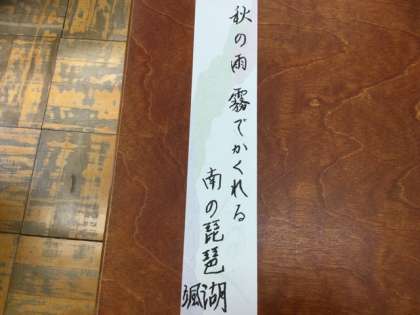 秋の雨 霧でかくれる
南の琵琶湖
颯